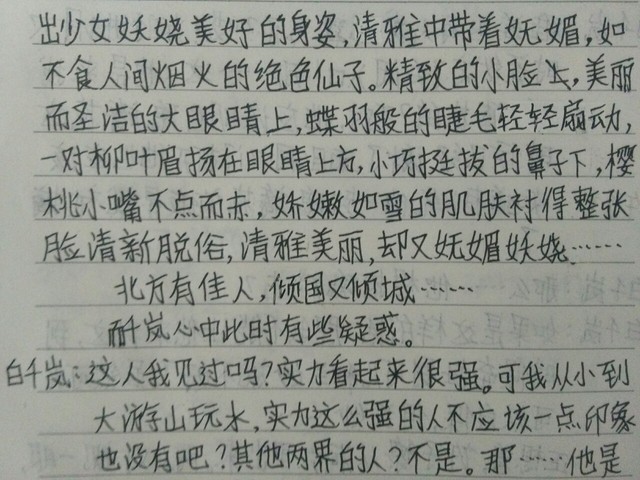 出少女妖娆美好的身姿,清雅中带着妩媚,如
不食人间烟火的绝色仙子。精致的小脸上,美丽
而圣洁的大眼睛上,蝶羽般的睫毛轻轻扇动,
一对柳叶眉扬在眼睛上方,小巧挺拔的鼻子下,樱
桃小嘴不点而赤,娇嫩如雪的肌肤衬得整张
脸清新脱俗,清雅美丽,却又妩媚妖娆……
北方有佳人,倾国又倾城……
而千岚心中此时有些疑惑。
白千岚:这人我见过吗?实力看起来很强。可我从小到
大游山玩水,实力这么强的人不应该一点印象
也没有吧?其他两界的人?不是。那……他是